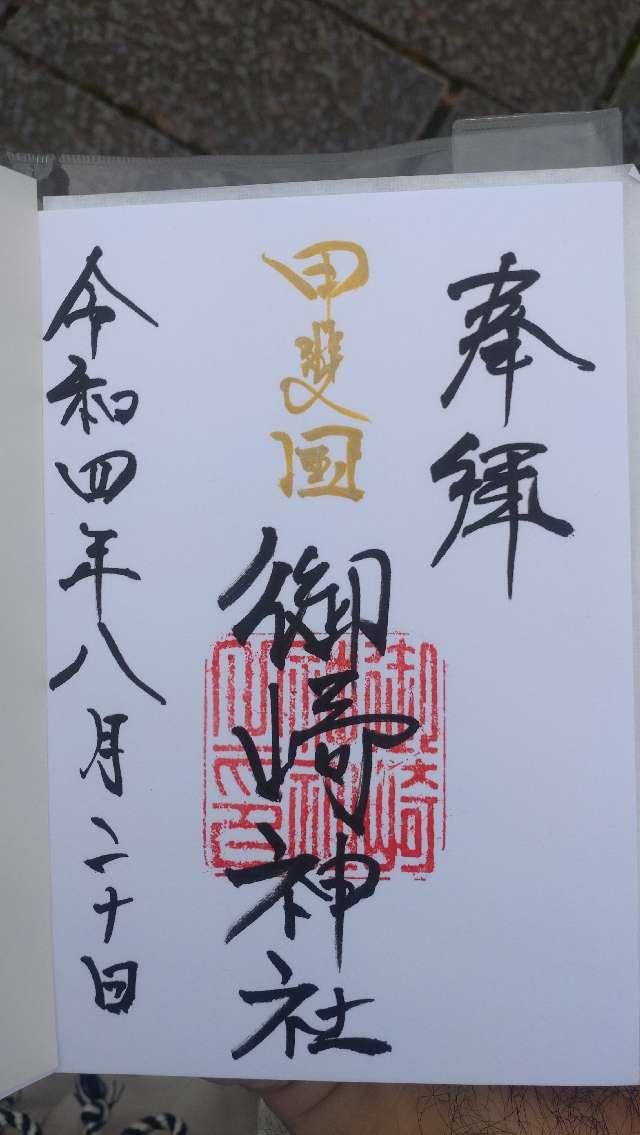 奉拝
甲斐国
御崎神社
令和四年八月二十日